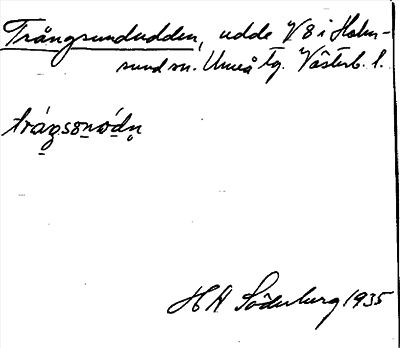 Trångsundudden, udde V 8 i Holm-
sund sn. Umeå tg. Västerb. l.
H A Söderburg 1935